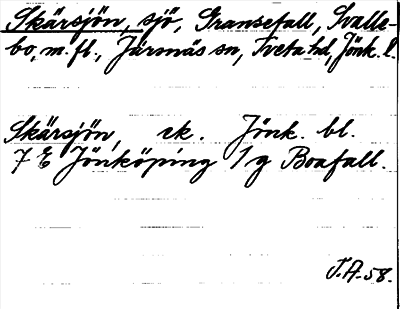 Skärsjön, sjö, Gransefall, Svalle-
bo, m.fl., Järsnäs sn, Tveta hd, Jönk. l.
Skärsjön, ek. Jönk. bl.
7 E Jönköping 1 g Boafall.
J.A. 58.